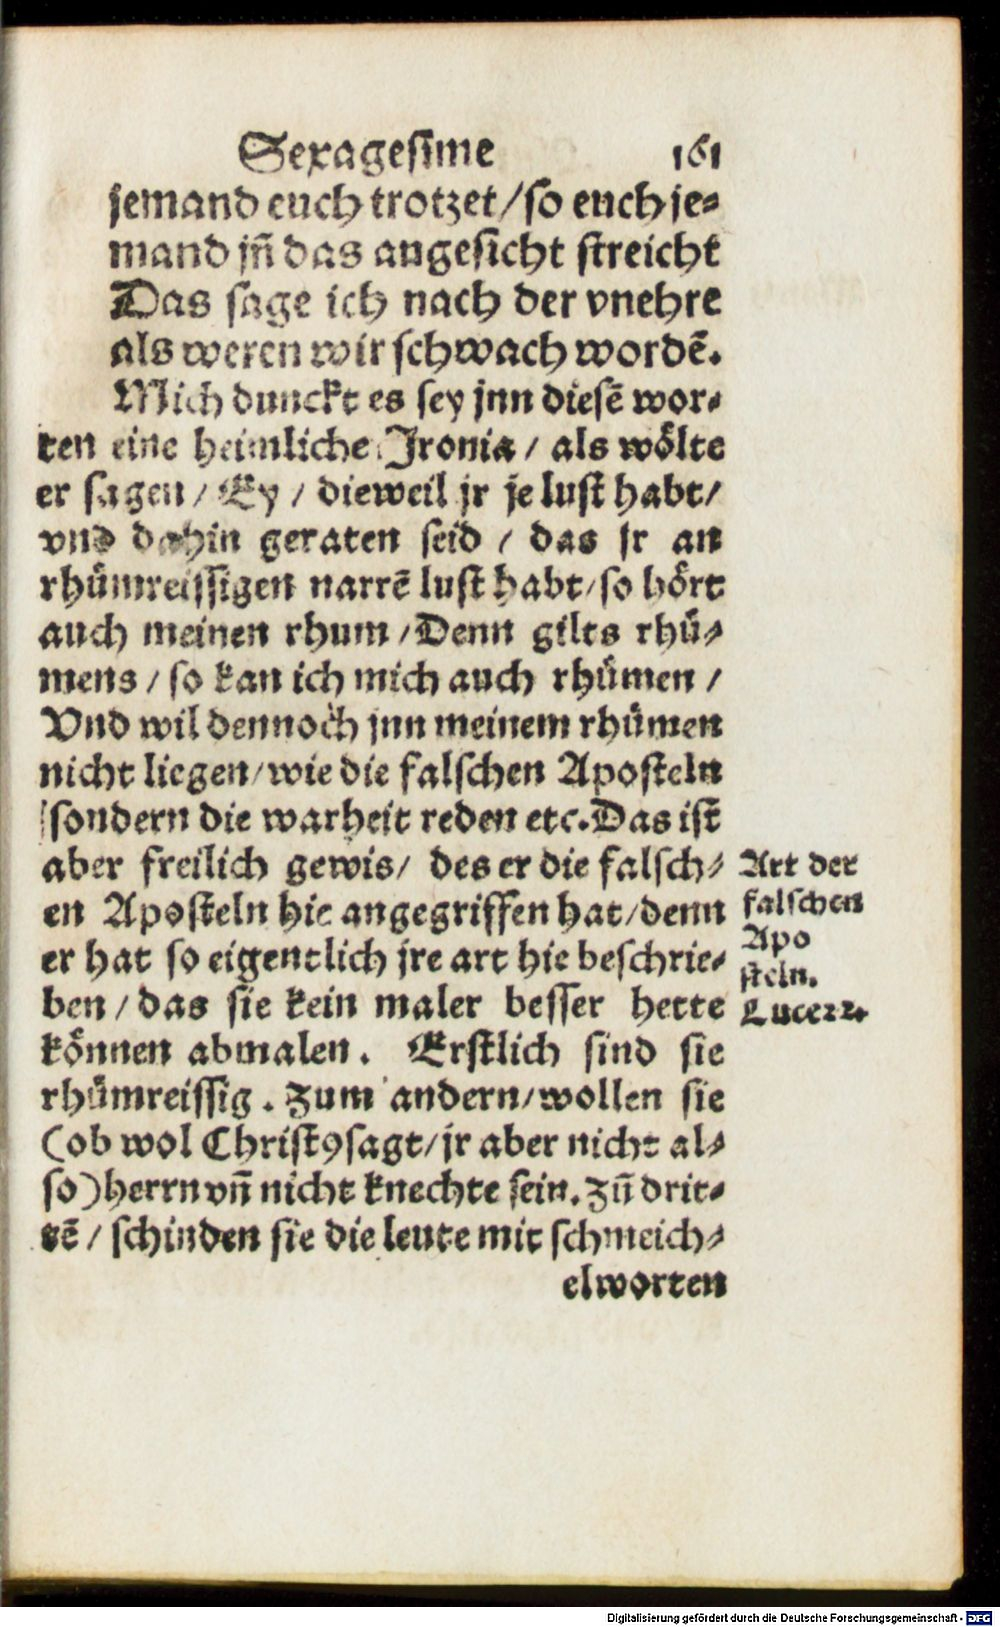 Sexagesime 161
jemand euch trotzet/so euch je-
mand jñ das angesicht streicht
Das sage ich nach der vnehre
als weren wir schwach wordẽ.
Mich dunckt es sey jnn diesẽ wor-
ten eine heimliche Jronia/ als wölte
er sagen/ Ey / dieweil jr je lust habt/
vnd dahin geraten seid / das jr an
rhümreissigen narrẽ lust habt/so hört
auch meinen rhum /Denn gilts rhü-
mens / so kan ich mich auch rhümen /
Vnd wil dennoch jnn meinem rhümen
nicht liegen/wie die falschen Aposteln
sondern die warheit reden etc.Das ist
aber freilich gewis/ des er die falsch-
en Aposteln hie angegriffen hat/denn
er hat so eigentlich jre art hie beschrie-
ben / das sie kein maler besser hette
können abmalen. Erstlich sind sie
rhümreissig. Zum andern/wollen sie
(ob wol Christꝰ sagt/jr aber nicht al-
so) herrn vñ nicht knechte sein. Zũ drit-
tẽ / schinden sie die leute mit schmeich-
elworten
Art der
falschen
Apo
steln.
Luce 22.
Digitalisierung gefördert durch die Deutsche Forschungsgemeinschaft - DFG